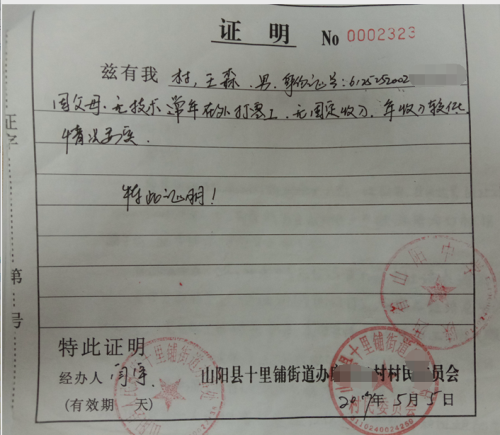 证明
No 0002323
兹有我 村，王森，男，身份证号：6125252002
因父母无技术常年在外打零工，无固定收入，年收入较低，
情况属实。
特此证明！
证字
第
号
特此证明
经办人
(有效期 天)
山阳县十里铺街道办 村村民 员会
2017年5月5日
山阳县十里铺街道
村民委员会